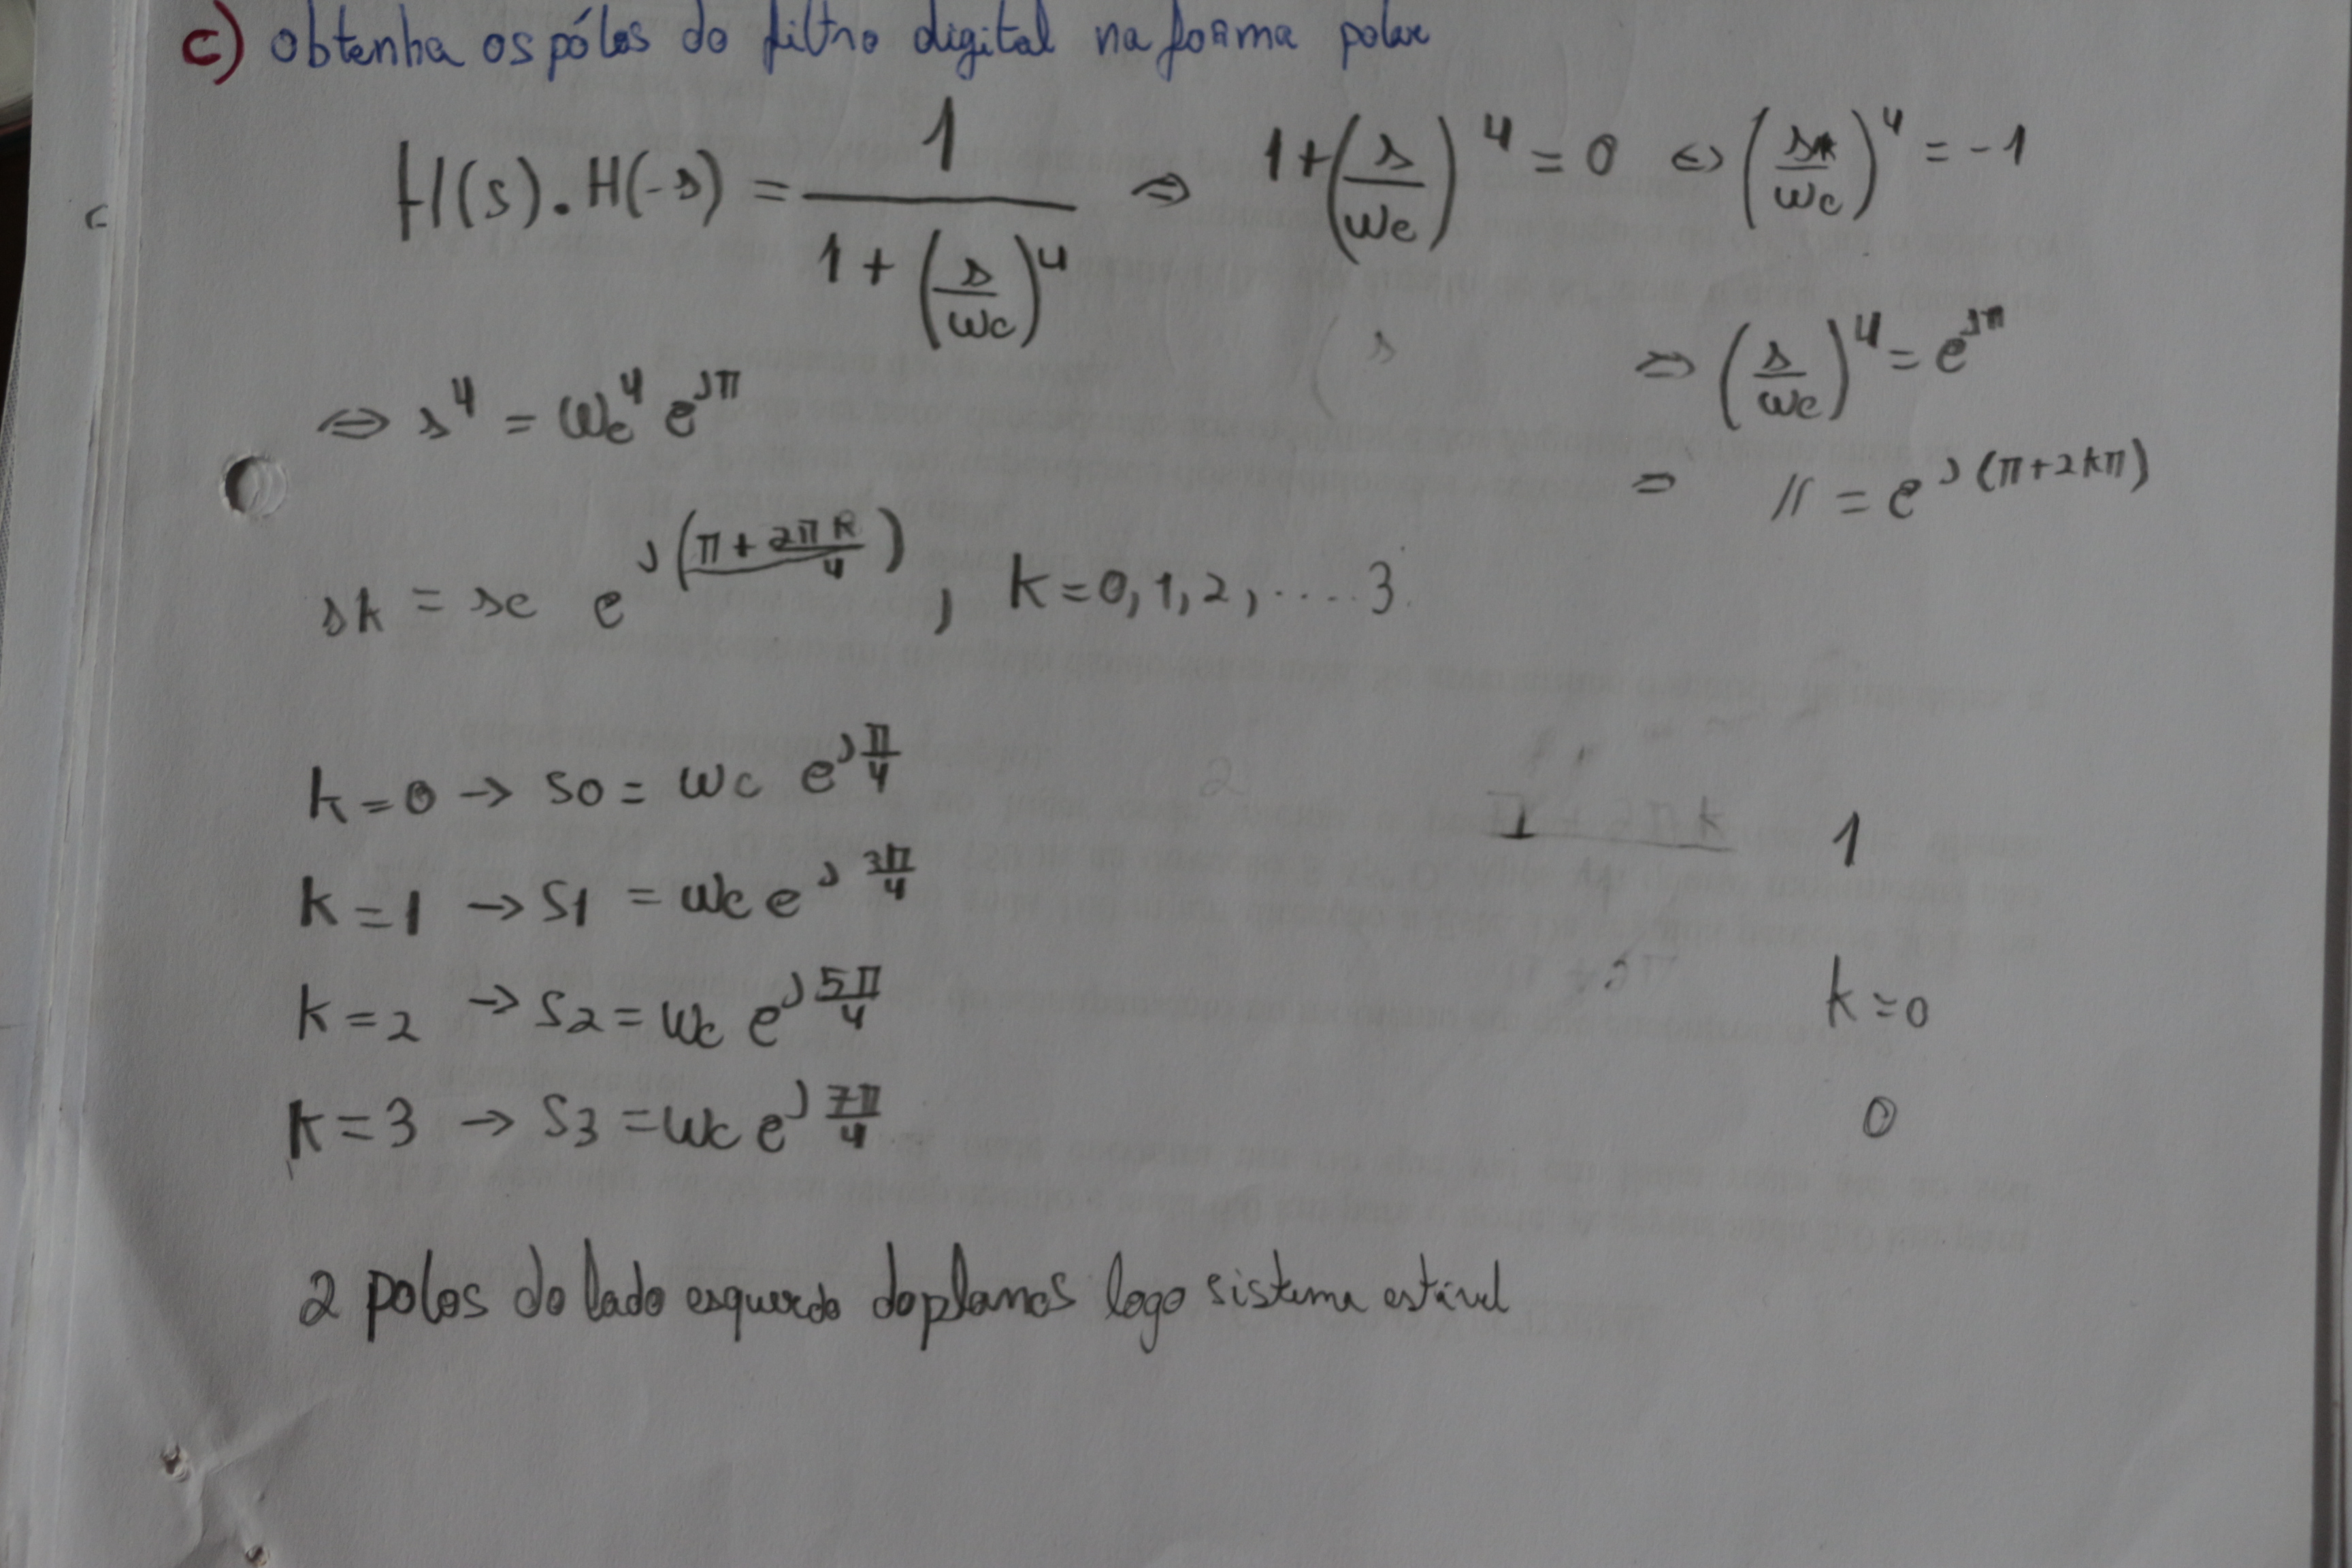 c) obtenha os pólos do filtro digital na forma polar
H(s).H(-s) = 1/(1+(s/wc)^4) ⇒ 1+(s/wc)^4 = 0 ⇔ (sk/wc)^4 = -1
⇔ s^4 = wc^4 e^(jπ) ⇔ (s/wc)^4 = e^(jπ)
= // = e^(j(π+2kπ))
sk = sc e^(j(π+2πk/4)), k=0,1,2,....3
k=0 → s0 = wc e^(jπ/4)
k=1 → s1 = wc e^(j3π/4)
k=2 → s2 = wc e^(j5π/4)
k=3 → s3 = wc e^(j7π/4)
1
k=0
0
2 polos do lado esquerdo do planos logo sistema estável